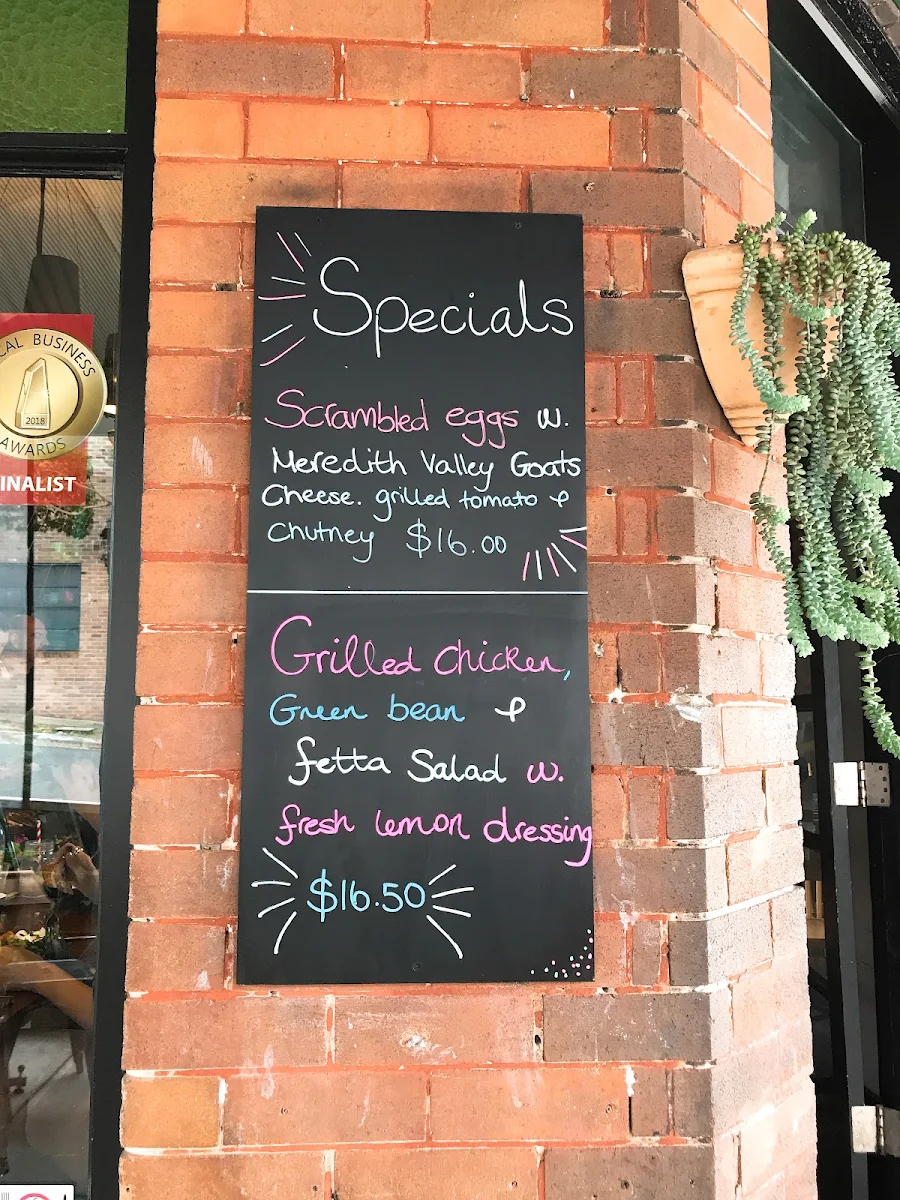 Specials
Scrambled eggs w.
Meredith Valley Goats
Cheese. grilled tomato &
Chutney $16.00
Grilled Chicken,
Green bean &
fetta Salad w.
fresh lemon dressing
$16.50
CAL BUSINESS
2018
AWARDS
INALIST